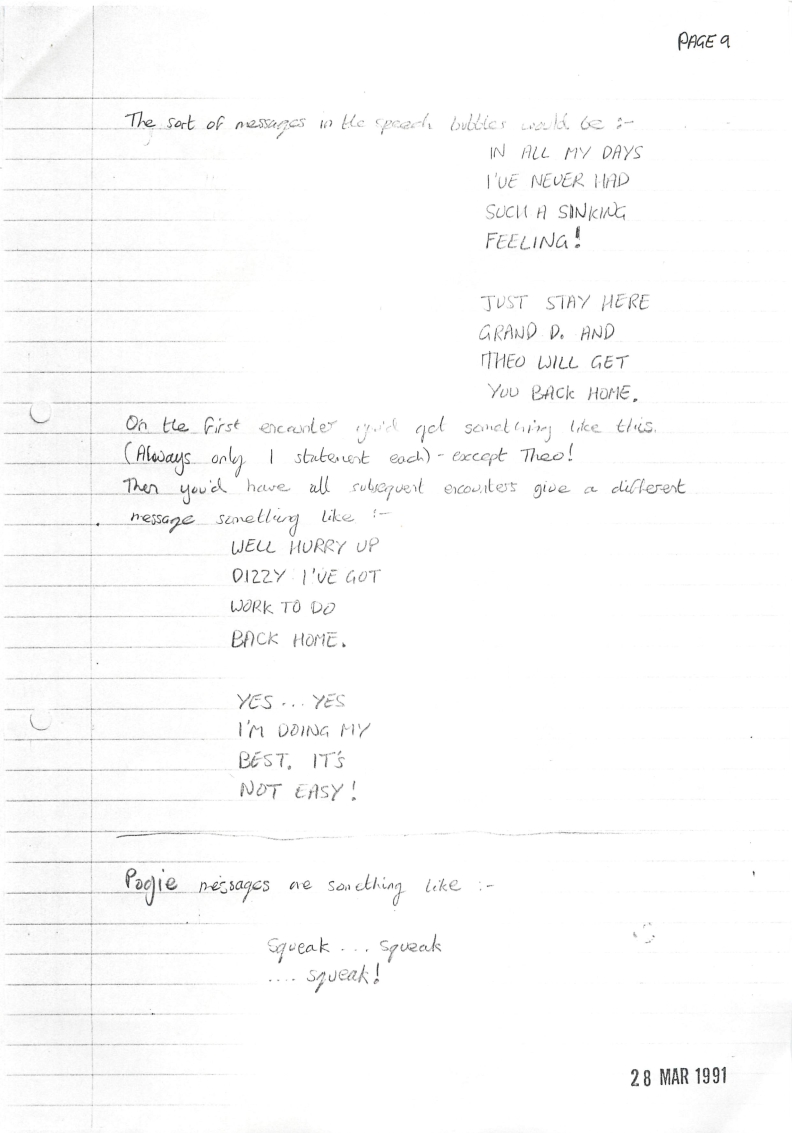 PAGE 9
The sort of messages in the speech bubbles would be :-
IN ALL MY DAYS
I'VE NEVER HAD
SUCH A SINKING
FEELING!
JUST STAY HERE
GRAND D. AND
THEO WILL GET
YOU BACK HOME.
On the first encounter you'd get something like this.
(Always only 1 statement each) - except Theo!
Then you'd have all subsequent encounters give a different
message something like :-
WELL HURRY UP
DIZZY I'VE GOT
WORK TO DO
BACK HOME.
YES ... YES
I'M DOING MY
BEST. IT'S
NOT EASY!
Pogie messages are something like :-
Squeak ... Squeak
.... squeak!
28 MAR 1991